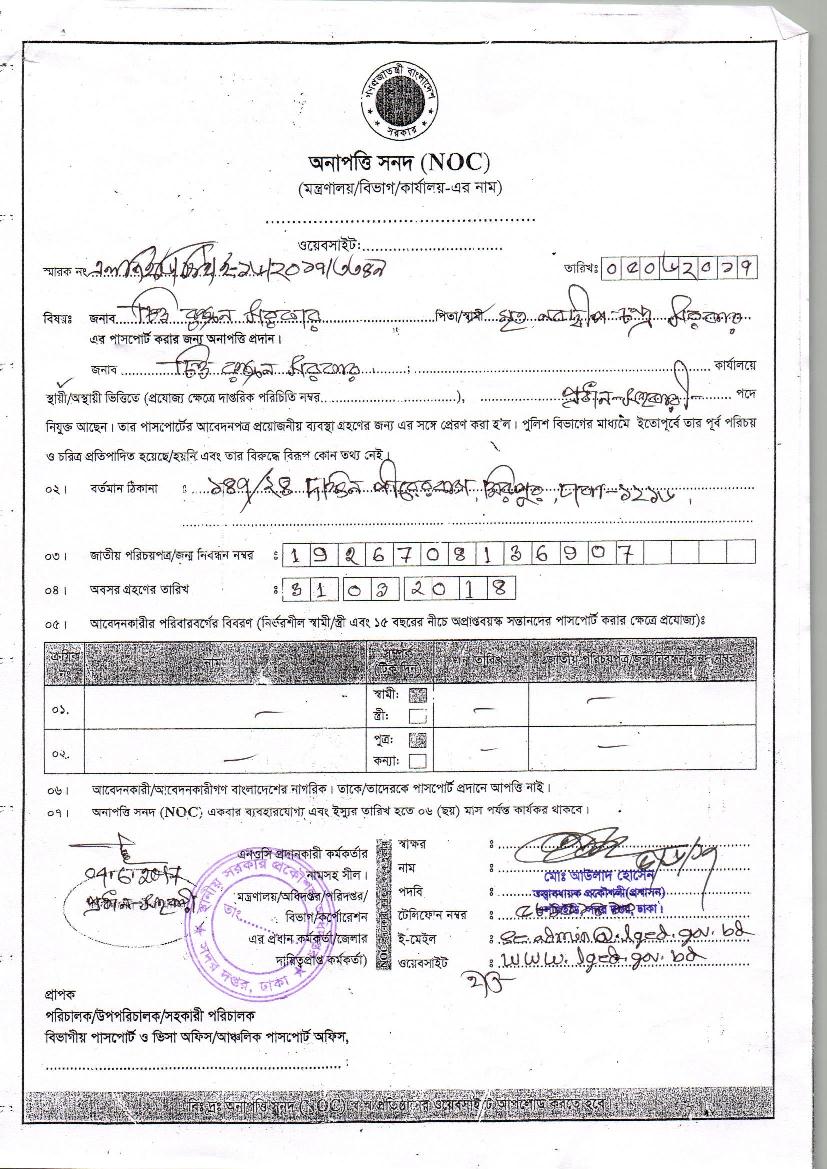 গণপ্রজাতন্ত্রী বাংলাদেশ
সরকার
অনাপত্তি সনদ (NOC)
(মন্ত্রণালয়/বিভাগ/কার্যালয়-এর নাম)
ওয়েবসাইট:
স্মারক নং
তারিখঃ ০৫০৬২০১৭
বিষয়ঃ জনাব চিত্ত রঞ্জন সরকার পিতা/স্বামী মৃত নবদ্বীপ চন্দ্র সরকার
এর পাসপোর্ট করার জন্য অনাপত্তি প্রদান।
জনাব চিত্ত রঞ্জন সরকার ; কার্যালয়ে
স্থায়ী/অস্থায়ী ভিত্তিতে (প্রযোজ্য ক্ষেত্রে দাপ্তরিক পরিচিতি নম্বর ), প্রধান-সহকারী পদে
নিযুক্ত আছেন। তার পাসপোর্টের আবেদনপত্র প্রয়োজনীয় ব্যবস্থা গ্রহণের জন্য এর সঙ্গে প্রেরণ করা হ'ল। পুলিশ বিভাগের মাধ্যমে ইতোপূর্বে তার পূর্ব পরিচয়
ও চরিত্র প্রতিপাদিত হয়েছে/হয়নি এবং তার বিরুদ্ধে বিরূপ কোন তথ্য নেই।
০২। বর্তমান ঠিকানা : ১৪৭/২৪ দক্ষিন পীরেরবাগ, মিরপুর, ঢাকা-১২১৬।
০৩। জাতীয় পরিচয়পত্র/জন্ম নিবন্ধন নম্বর : 1926708136907
০৪। অবসর গ্রহণের তারিখ : 31 03 2018
০৫। আবেদনকারীর পরিবারবর্গের বিবরণ (নির্ভরশীল স্বামী/স্ত্রী এবং ১৫ বছরের নীচে অপ্রাপ্তবয়স্ক সন্তানদের পাসপোর্ট করার ক্ষেত্রে প্রযোজ্য)ঃ
ক্রমিক নাম তারিখ
০১. স্বামী:
স্ত্রী:
০২. পুত্র:
কন্যা:
০৬। আবেদনকারী/আবেদনকারীগণ বাংলাদেশের নাগরিক। তাকে/তাদেরকে পাসপোর্ট প্রদানে আপত্তি নাই।
০৭। অনাপত্তি সনদ (NOC) একবার ব্যবহারযোগ্য এবং ইস্যুর তারিখ হতে ০৬ (ছয়) মাস পর্যন্ত কার্যকর থাকবে।
04.6.2017
প্রধান-সহকারী
এনওসি প্রদানকারী কর্মকর্তার
নামসহ সীল।
মন্ত্রণালয়/অধিদপ্তর/পরিদপ্তর/
বিভাগ/কর্পোরেশন
এর প্রধান কর্মকর্তা/জেলার
দায়িত্বপ্রাপ্ত কর্মকর্তা)
স্থানীয় সরকার প্রকৌশল
সদর দপ্তর, ঢাকা
তাং
স্বাক্ষর :
নাম : মোঃ আউলাদ হোসেন
পদবি : তত্ত্বাবধায়ক প্রকৌশলী(প্রশাসন)
টেলিফোন নম্বর :
ই-মেইল : se.admin@lged.gov.bd
ওয়েবসাইট : www.lged.gov.bd
প্রাপক
পরিচালক/উপপরিচালক/সহকারী পরিচালক
বিভাগীয় পাসপোর্ট ও ভিসা অফিস/আঞ্চলিক পাসপোর্ট অফিস,
বিঃদ্রঃ অনাপত্তি সনদ (NOC) ওয়েবসাইটে আপলোড করতে হবে